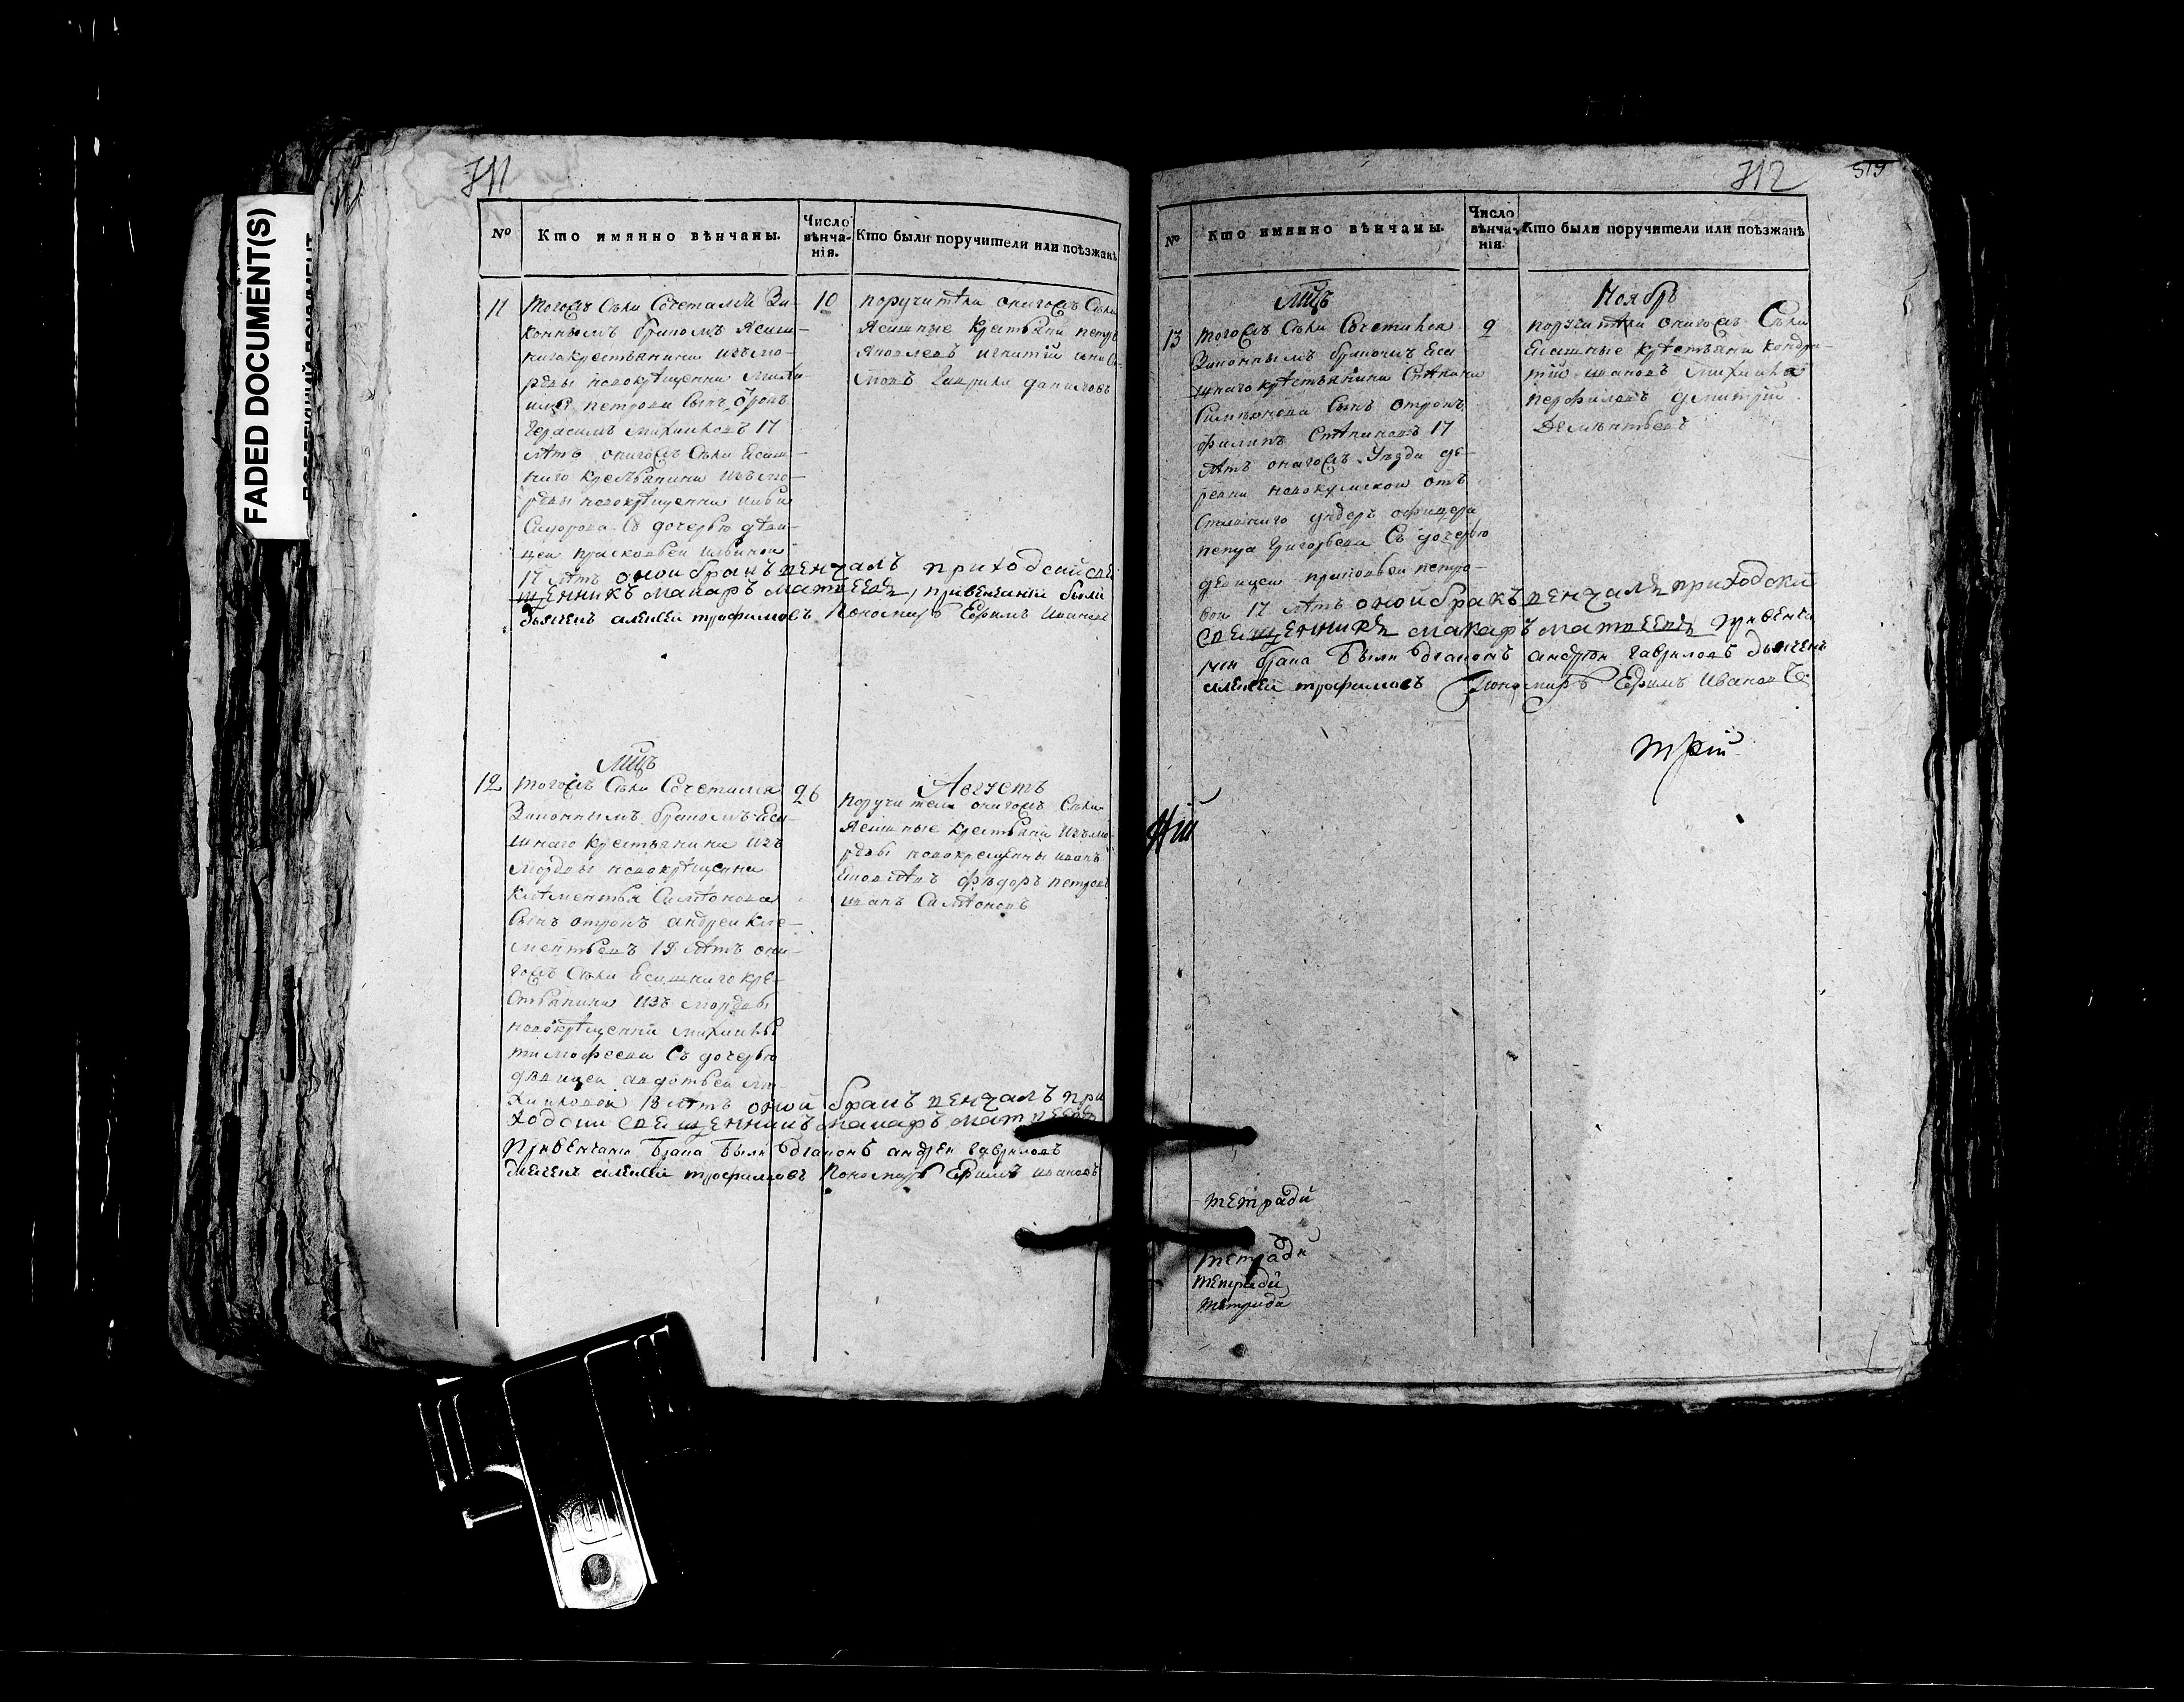 FADED DOCUMENT(S)
711
№ Кто имянно вѣнчаны. Число вѣнча-нія. Кто были поручители или поѣзжанѣ
11 тогожъ Села Сочетался За-
коннымъ бракомъ Ясаш-
наго крестьянина изъ мо-
рдвы новокрещенна
петрова Сынъ отрокъ
Герасимъ михаиловъ 17
лѣтъ онагожъ Села Ясаш-
наго крестьянина изъ мо-
рдвы новокрещенна ильи
Сидорова Съ дочерью дѣви-
цей прасковьей ильиной
17 лѣтъ оной бракъ венчалъ приходский све
щенникъ макаръ матвеевъ, привенчании были
дьячекъ алексей трофимовъ Пономарь Ефимъ Ивановъ
10 поручители онагожъ Села
Ясашные крестьяни петръ
Яковлевъ игнатий
Гаврила даниловъ
Мцъ Августъ
12 тогожъ Села Сочетался
Законнымъ бракомъ Яса-
шнаго крестьянина изъ
мордвы новокрещенна
Клементья Симионова
Сынъ отрокъ андрей Кле-
ментьевъ 19 лѣтъ она-
гожъ Села Ясашнаго кре-
стьянина изъ мордвы
новокрещенна михаилы
тимофеева Съ дочерью
дѣвицей авдотьей ми-
хаиловой 18 лѣтъ оной бракъ венчалъ при
ходский священникъ макаръ матвеевъ
Привенчании брака были диаконъ андрей Гавриловъ
дьячекъ алексей трофимовъ Пономарь Ефимъ ивановъ
26 поручители онагожъ Села
Ясашные крестьяни изъ мо-
рдвы новокрещенны иванъ
фѣдоръ петровъ
иванъ Симионовъ
712
519
№ Кто имянно вѣнчаны. Число вѣнча-нія. Кто были поручители или поѣзжанѣ
Мцъ Ноябрь
13 тогожъ Села Сочетался
Законнымъ бракомъ Яса
шнаго крестьянина Степана
Симионова Сынъ отрокъ
филипъ Степановъ 17
лѣтъ онагожъ Уезда де-
ревни отъ
ставнаго ундеръ офицера
петра Григорьева Съ дочерью
дѣвицей прасковьей петро-
вой 17 лѣтъ оной бракъ венчалъ приходский
священникъ макаръ матвеевъ привенча
нии брака были диаконъ андрей Гавриловъ дьячекъ
алексей трофимовъ Пономарь Ефимъ Ивановъ
9 поручители онагожъ Села
Ясашные крестьяни Кондра-
тий ивановъ михаила
перфиловъ дмитрий
Дементьевъ
тетради
тетради
тетради
тетради